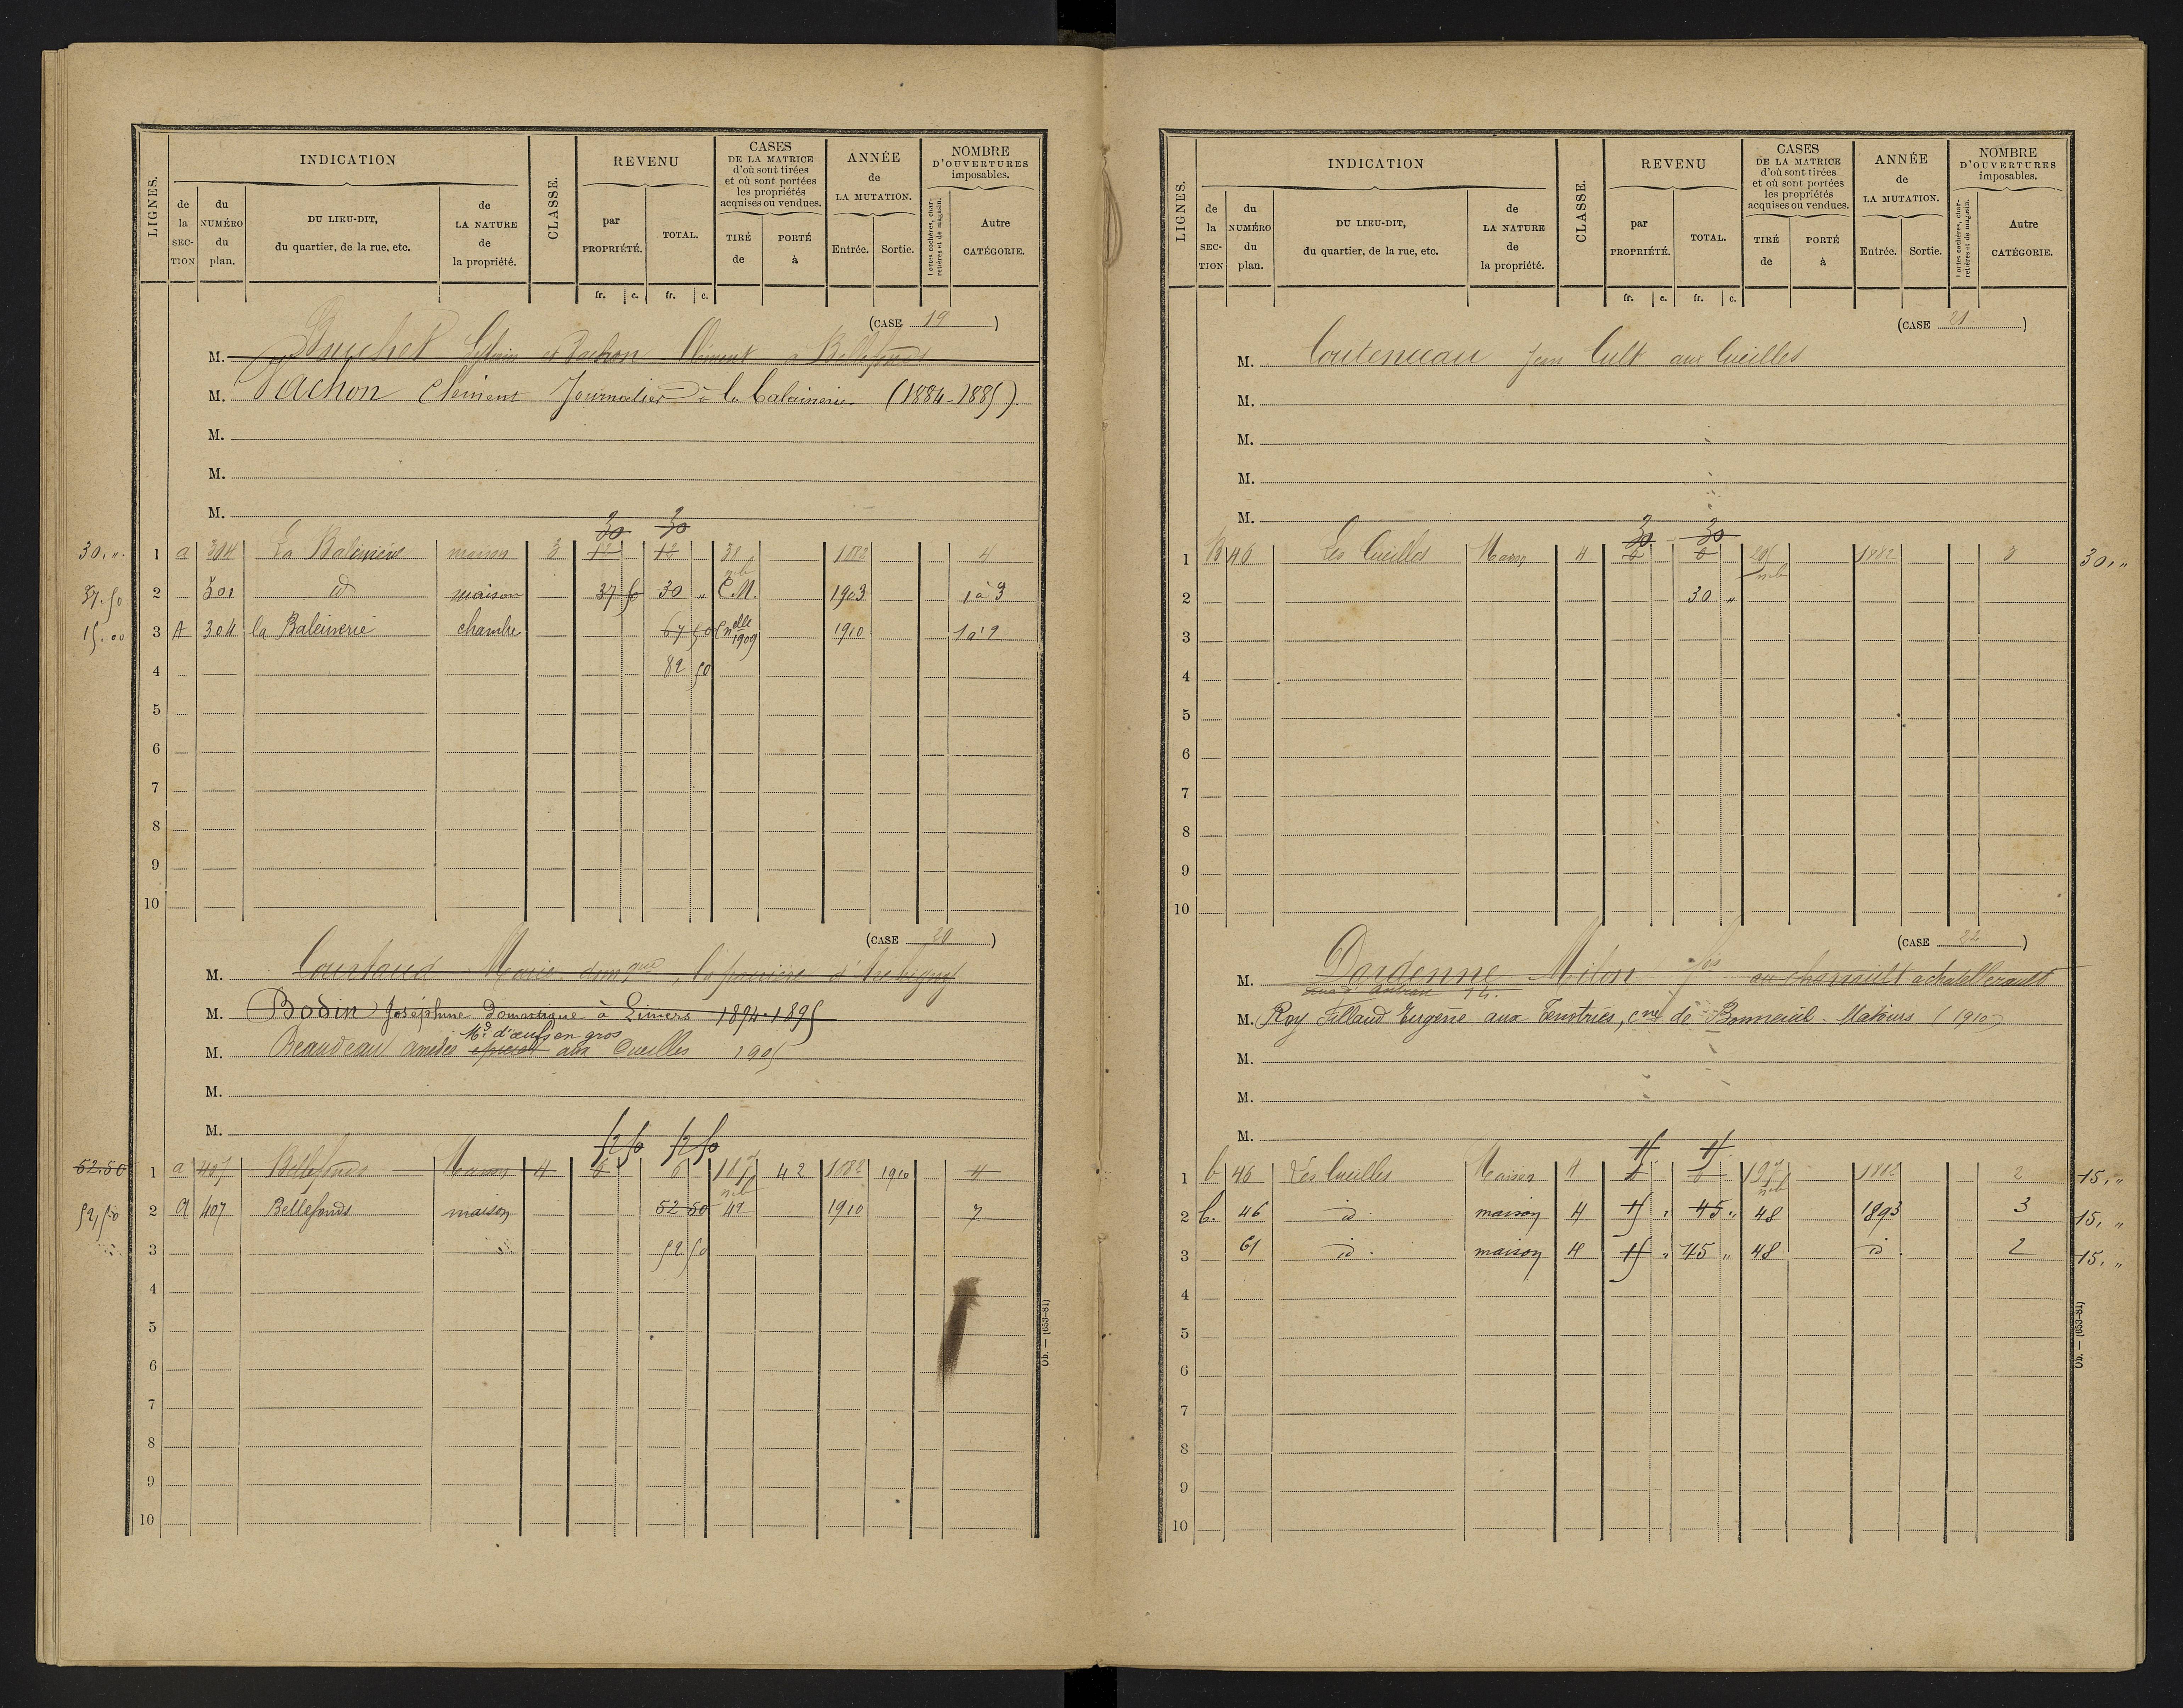 LIGNES.
INDICATION
de la SECTION
du NUMÉRO du plan.
DU LIEU-DIT, du quartier, de la rue, etc.
de LA NATURE de la propriété.
CLASSE.
REVENU
par PROPRIÉTÉ.
TOTAL.
fr. c. fr. c.
CASES DE LA MATRICE d'où sont tirées et où sont portées les propriétés acquises ou vendues.
TIRÉ de
PORTÉ à
ANNÉE de LA MUTATION.
Entrée.
Sortie.
NOMBRE D'OUVERTURES imposables.
Portes cochères, charretières et de magasin.
Autre CATÉGORIE.
(CASE 19)
M. et Pachon Clément à Bellefonds
M. Pachon Clément Journalier à la (1884-1885)
M.
M.
M.
30 30
30. " 1 a 304 La maison 3 12 12 38 1882 4
37.50 2 301 id maison 37 50 30 " C.N. 1903 1à3
15.00 3 A 304 la Baleinerie chambre 67 50 Cn elle 1909 1910 1à2
4 82 50
5
6
7
8
9
10
(CASE 20)
M. Courtaud Marie
M. Bodin Joséphine Domestique à Liniers 1894-1895
Md d'œufs en gros
M. Beaudeau amédé aux Cueilles 1905
M.
M.
52 50 52 50
52.50 1 a 407 Bellefonds Maison 4 6 6 42 1882 1910 4
52,50 2 A 407 Bellefonds maison 52 50 42 1910 7
3 52 50
4
5
6
7
8
9
10
Ob. — (653-81)
LIGNES.
INDICATION
de la SECTION
du NUMÉRO du plan.
DU LIEU-DIT, du quartier, de la rue, etc.
de LA NATURE de la propriété.
CLASSE.
REVENU
par PROPRIÉTÉ.
TOTAL.
fr. c. fr. c.
CASES DE LA MATRICE d'où sont tirées et où sont portées les propriétés acquises ou vendues.
TIRÉ de
PORTÉ à
ANNÉE de LA MUTATION.
Entrée.
Sortie.
NOMBRE D'OUVERTURES imposables.
Portes cochères, charretières et de magasin.
Autre CATÉGORIE.
(CASE 21)
M. Couteneeau Jean Cult aux Cueilles
M.
M.
M.
M.
30 30
1 B 46 Les Cueilles Maison 4 6 6 1882 3 30, "
2 30 "
3
4
5
6
7
8
9
10
(CASE 22)
M. Dardenne Milon a chatellerault
M. Roy Fillaud Eugene aux Tenotries, cne de Bonneuil-Matours (1910)
M.
M.
M.
15 15
1 b 46 Les Cueilles Maison 4 1882 2 15, "
2 b. 46 id. maison 4 15 " 45 " 48 1893 3 15, "
3 61 id. maison 4 15 " 45 " 48 id. 2 15, "
4
5
6
7
8
9
10
Ob. — (653-81)